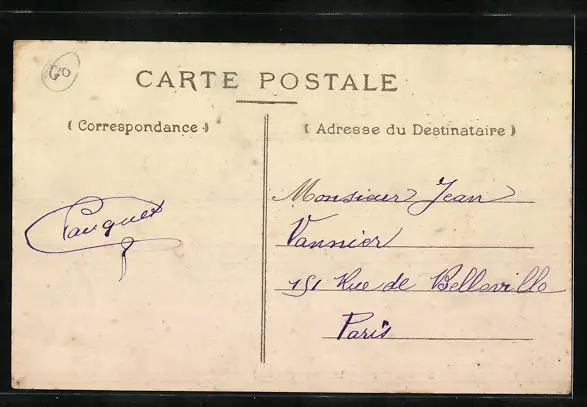 60
CARTE POSTALE
( Correspondance )
( Adresse du Destinataire )
Fauquex
Monsieur Jean
Vannier
151 Rue de Belleville
Paris